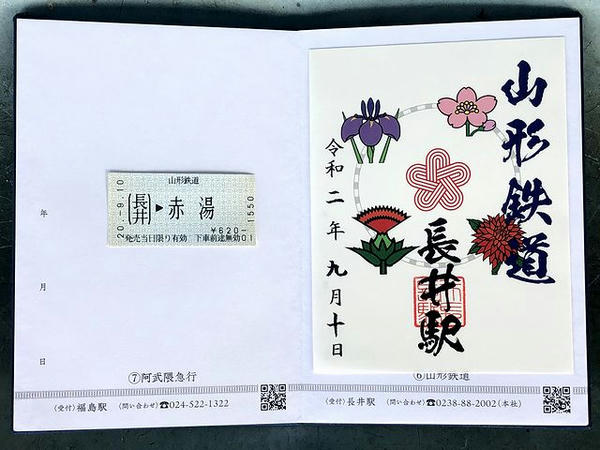 年
月
日
山形鉄道
20.-9.10
長井▶赤湯
¥620-
1550
発売当日限り有効 下車前途無効01
⑦阿武隈急行
(受付)福島駅 (問い合わせ)☎024-522-1322
山形鉄道
長井駅
令和二年九月十日
⑥山形鉄道
(受付)長井駅 (問い合わせ)☎0238-88-2002(本社)